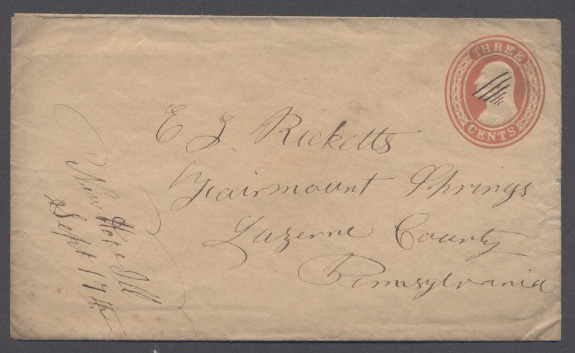 THREE
CENTS
E J. Ricketts
Fairmount Springs
Luzerne County
Pennsylvania
New Hope Ill
Sept 17th